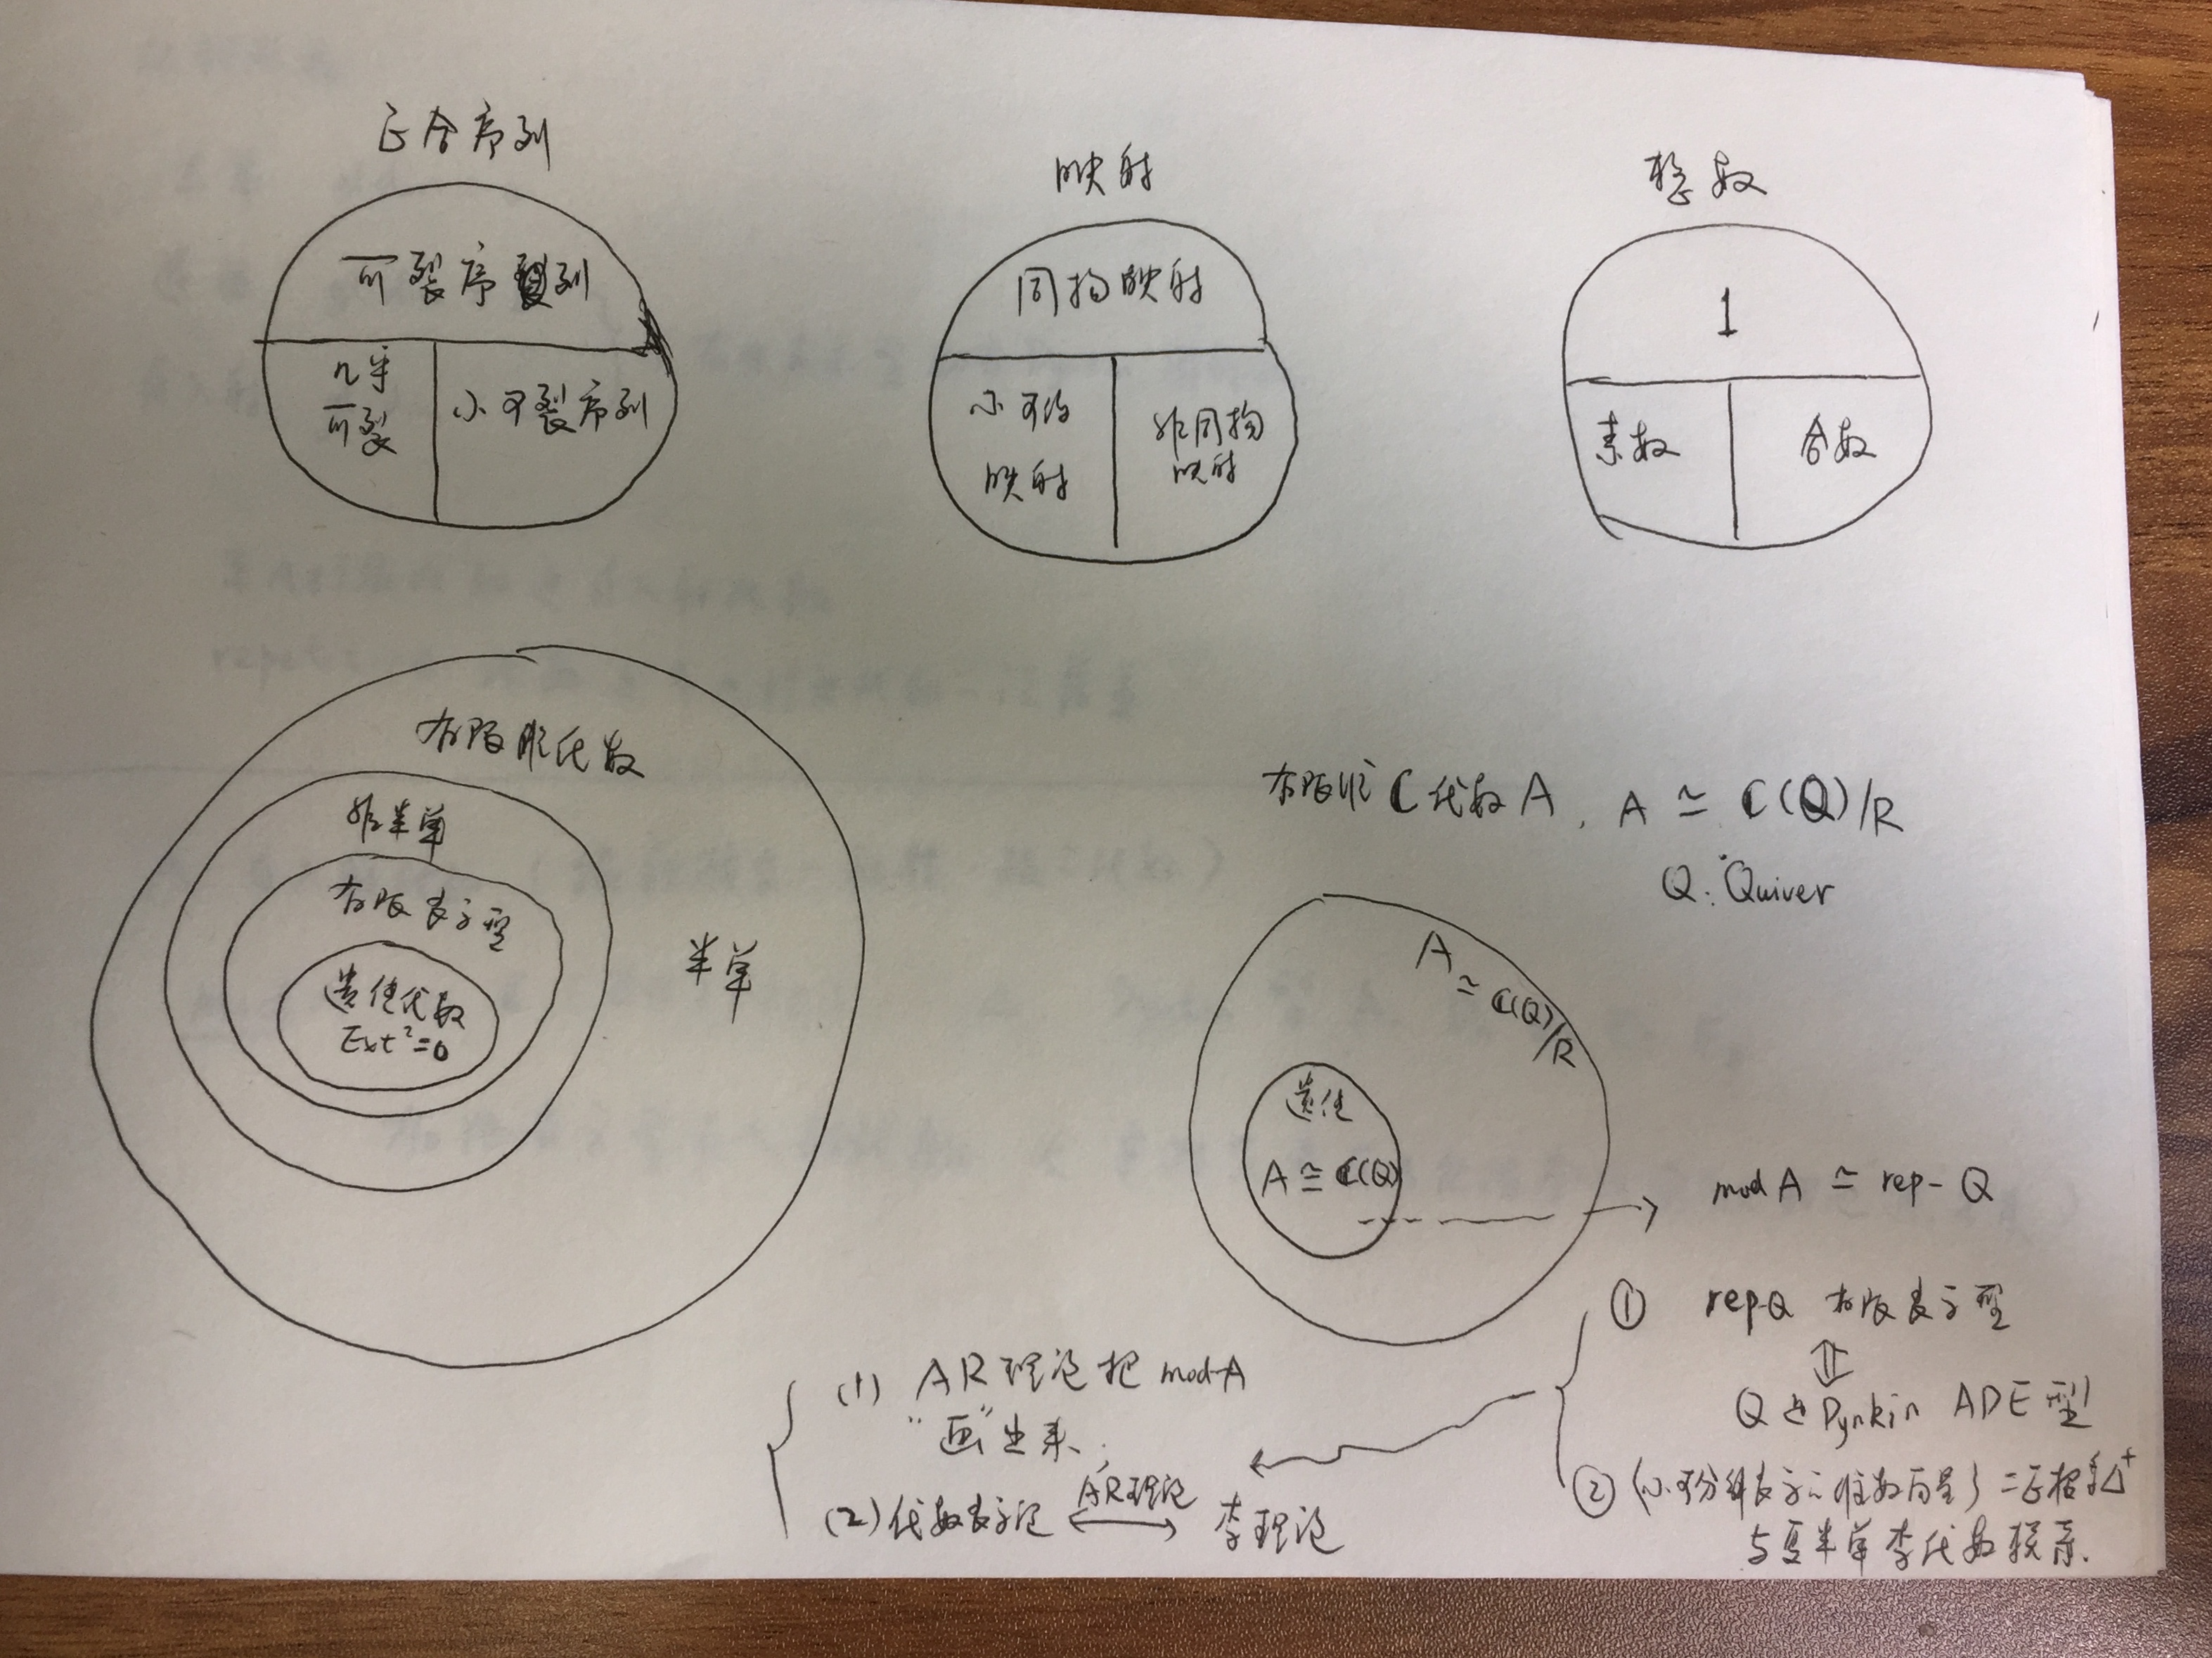 正合序列
可裂序列
几乎
可裂
不可裂序列
映射
同构映射
不可约
映射
非同构
映射
整数
1
素数
合数
有限维代数
非半单
有限表示型
遗传代数
Ext²=0
半单
有限维 ℂ 代数 A , A ≃ ℂ(Q)/R
Q : Quiver
A
≃ ℂ(Q)/R
遗传
A ≃ ℂ(Q)
mod A ≃ rep-Q
① rep-Q 有限表示型
⇕
Q 是 Dynkin ADE 型
② {不可分解表示之维数向量} = 正根系 Δ⁺
与复半单李代数联系.
(1) AR理论把 mod-A
"画"出来.
(2) 代数表示论 AR理论 ⟷ 李理论